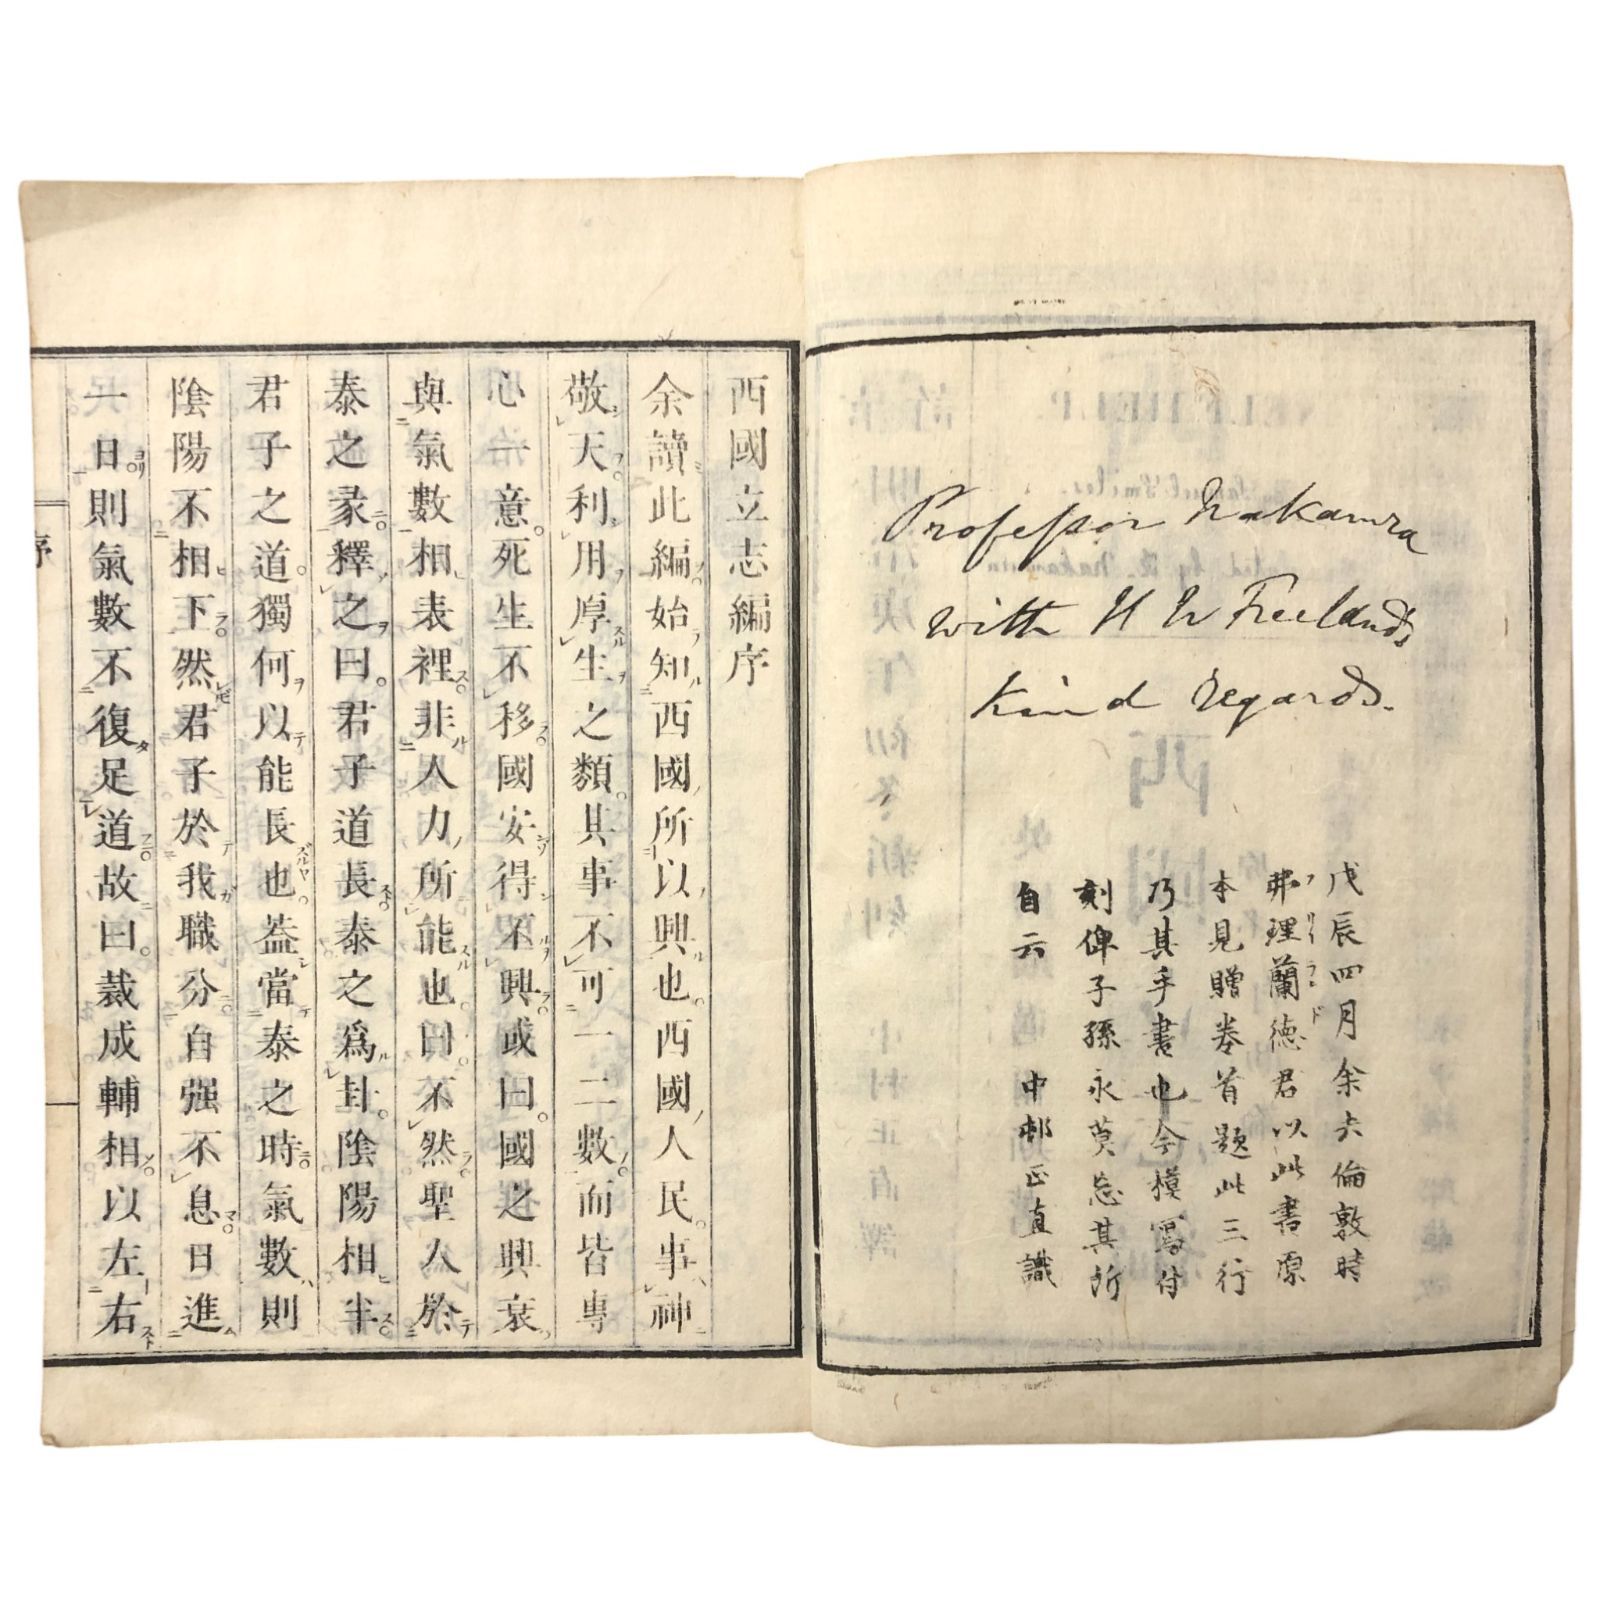 Professor Nakamura
with H W Freeland's
kind regards.
戊辰四月余去倫敦時
弗理蘭德君以此書原
本見贈卷首題此三行
乃其手書也今模寫付
刻俾子孫永莫忘其所
自云 中邨正直識
西國立志編序
余讀此編始知西國所以興也西國人民事神
敬天利用厚生之類其事不可一二數而皆專
心一意死生不移國安得不興或曰國之興衰
與氣數相表裡非人力所能也曰不然聖人於
泰之彖釋之曰君子道長泰之為卦陰陽相半
君子之道獨何以能長也蓋當泰之時氣數則
陰陽不相下然君子於我職分自强不息日進
一日則氣數不復足道故曰裁成輔相以左右
序